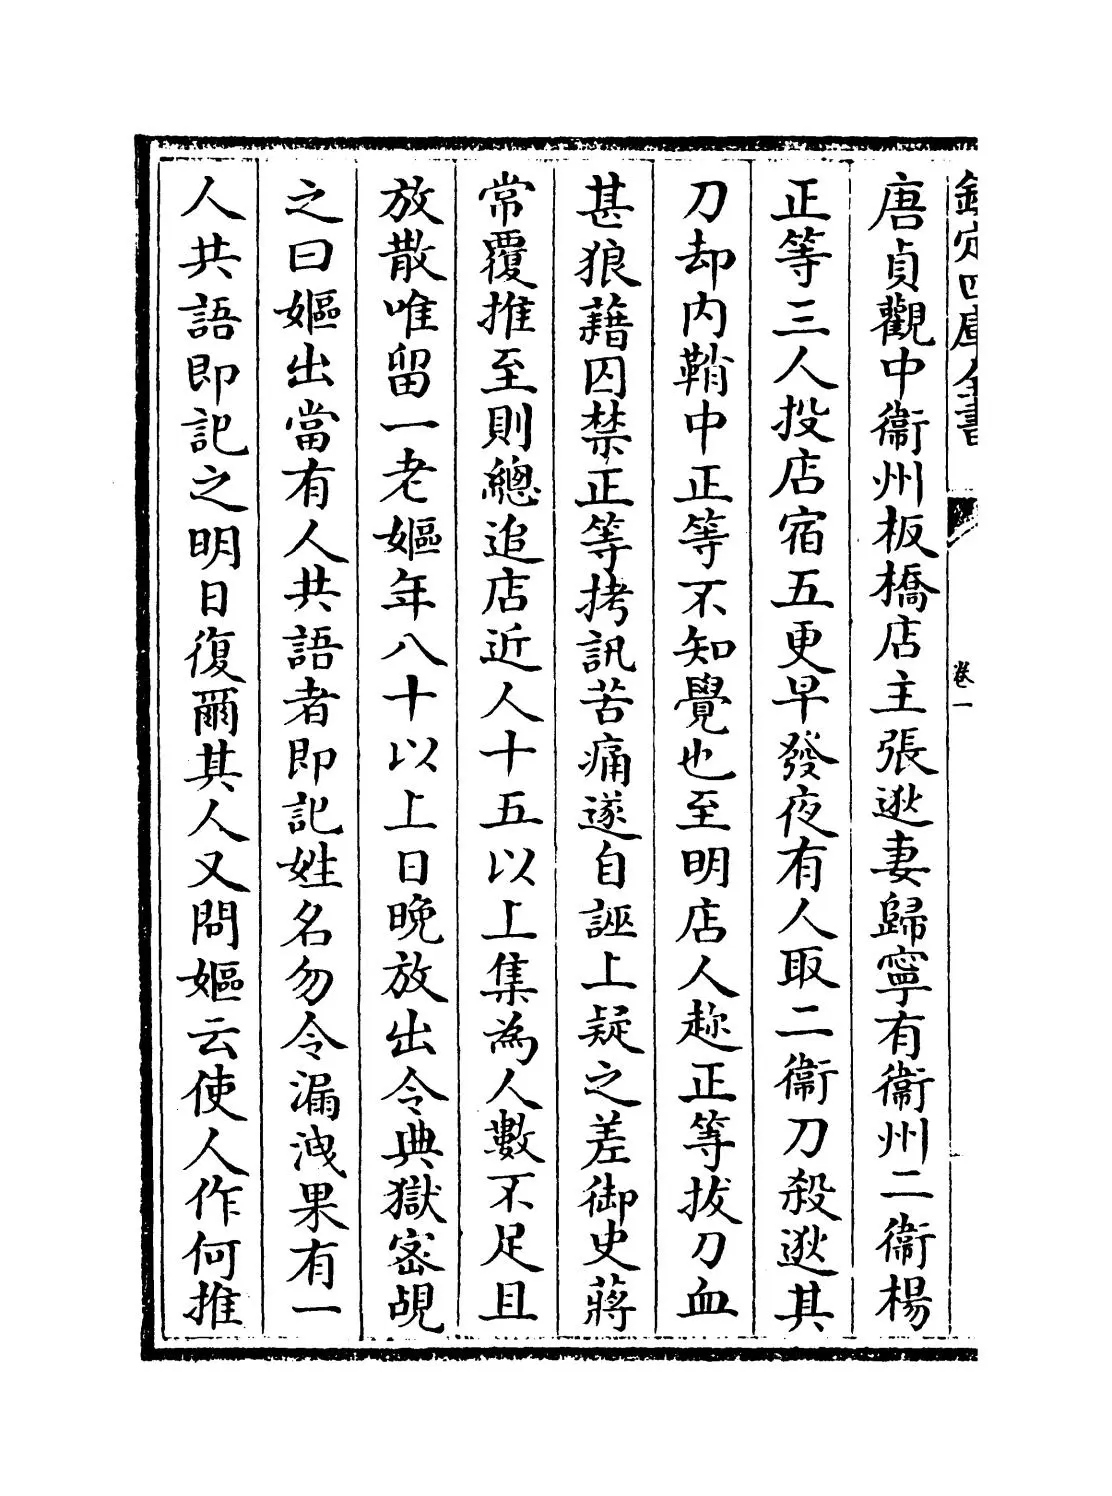 欽定四庫全書
卷一
唐貞觀中衞州板橋店主張逖妻歸寧有衞州二衞楊
正等三人投店宿五更早發夜有人取二衞刀殺逖其
刀却内鞘中正等不知覺也至明店人趂正等拔刀血
甚狼藉囚禁正等拷訊苦痛遂自誣上疑之差御史蔣
常覆推至則總追店近人十五以上集為人數不足且
放散唯留一老嫗年八十以上日晚放出令典獄宻覘
之曰嫗出當有人共語者即記姓名勿令漏洩果有一
人共語即記之明日復爾其人又問嫗云使人作何推